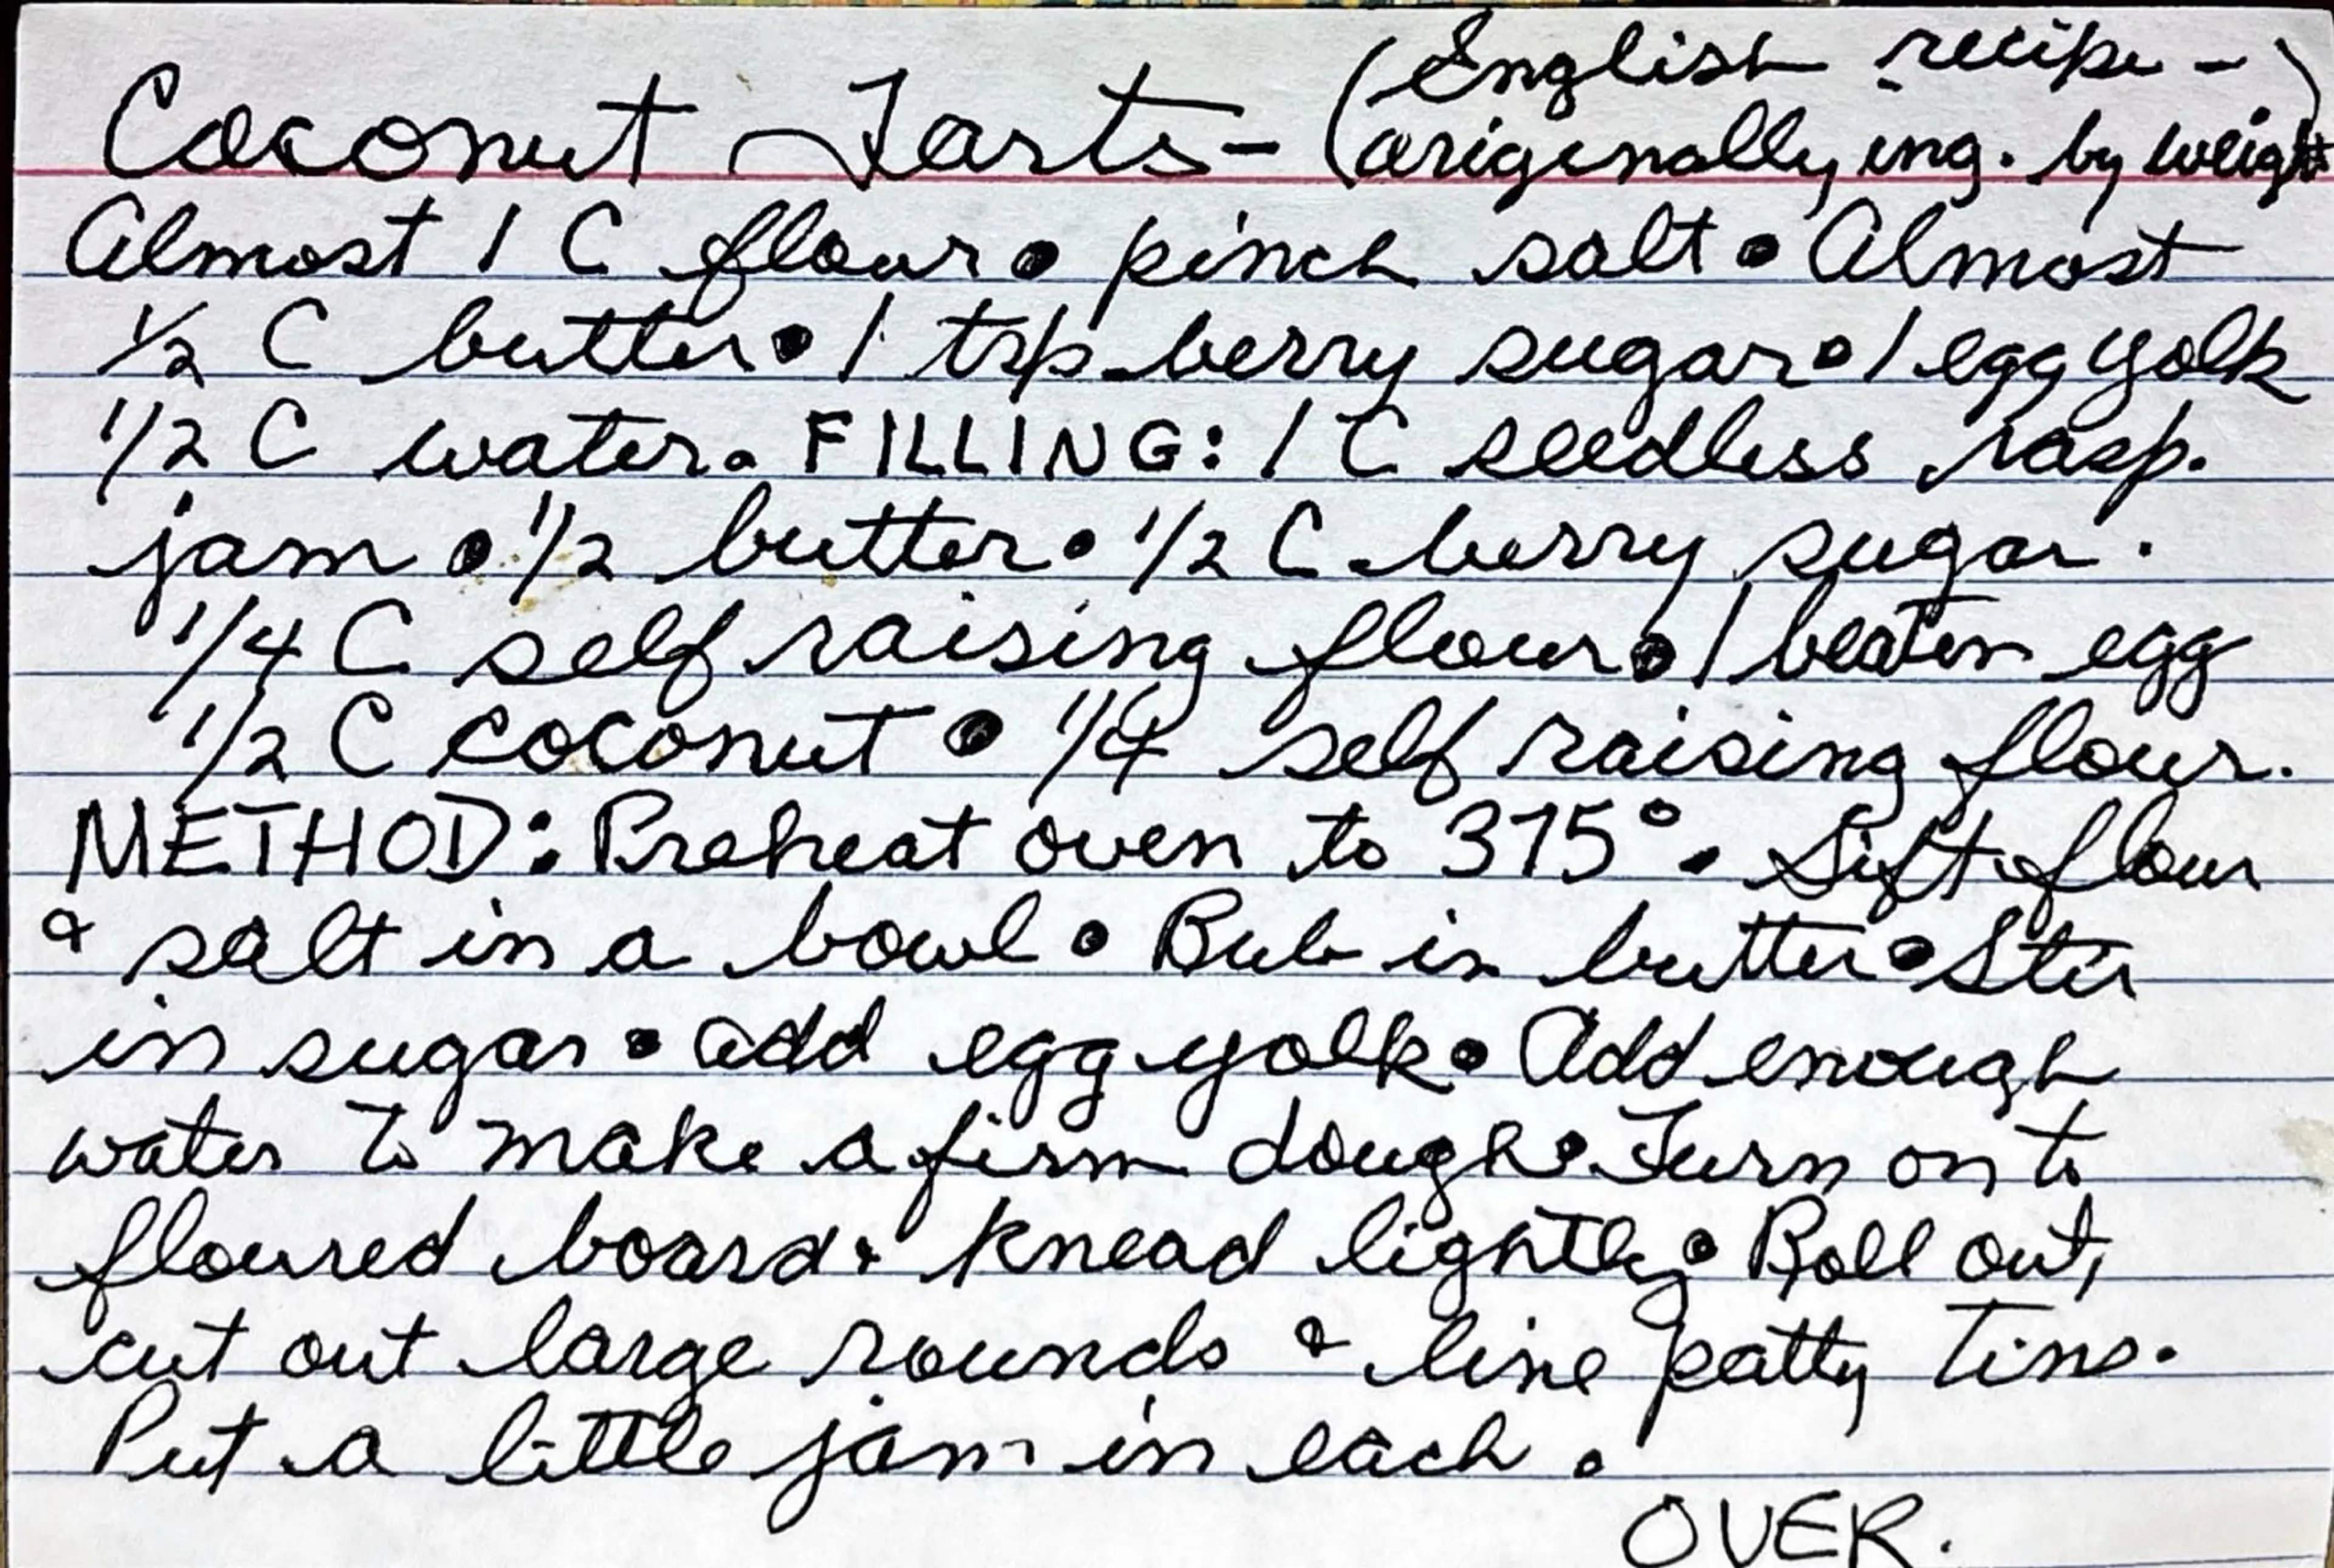 (English recipe -)
Coconut Tarts - (originally ing. by weight
Almost 1 C flour • pinch salt • Almost
1/2 C butter • 1 tsp berry sugar • 1 egg yolk
1/2 C water. FILLING: 1 C seedless rasp.
jam • 1/2 butter • 1/2 C berry sugar.
1/4 C self raising flour • 1 beaten egg
1/2 C coconut • 1/4 self raising flour.
METHOD: Preheat oven to 375°. Sift flour
& salt in a bowl • Rub in butter • Stir
in sugar • add egg yolk • Add enough
water to make a firm dough • Turn on to
floured board • knead lightly • Roll out,
cut out large rounds & line patty tins.
Put a little jam in each.
OVER.